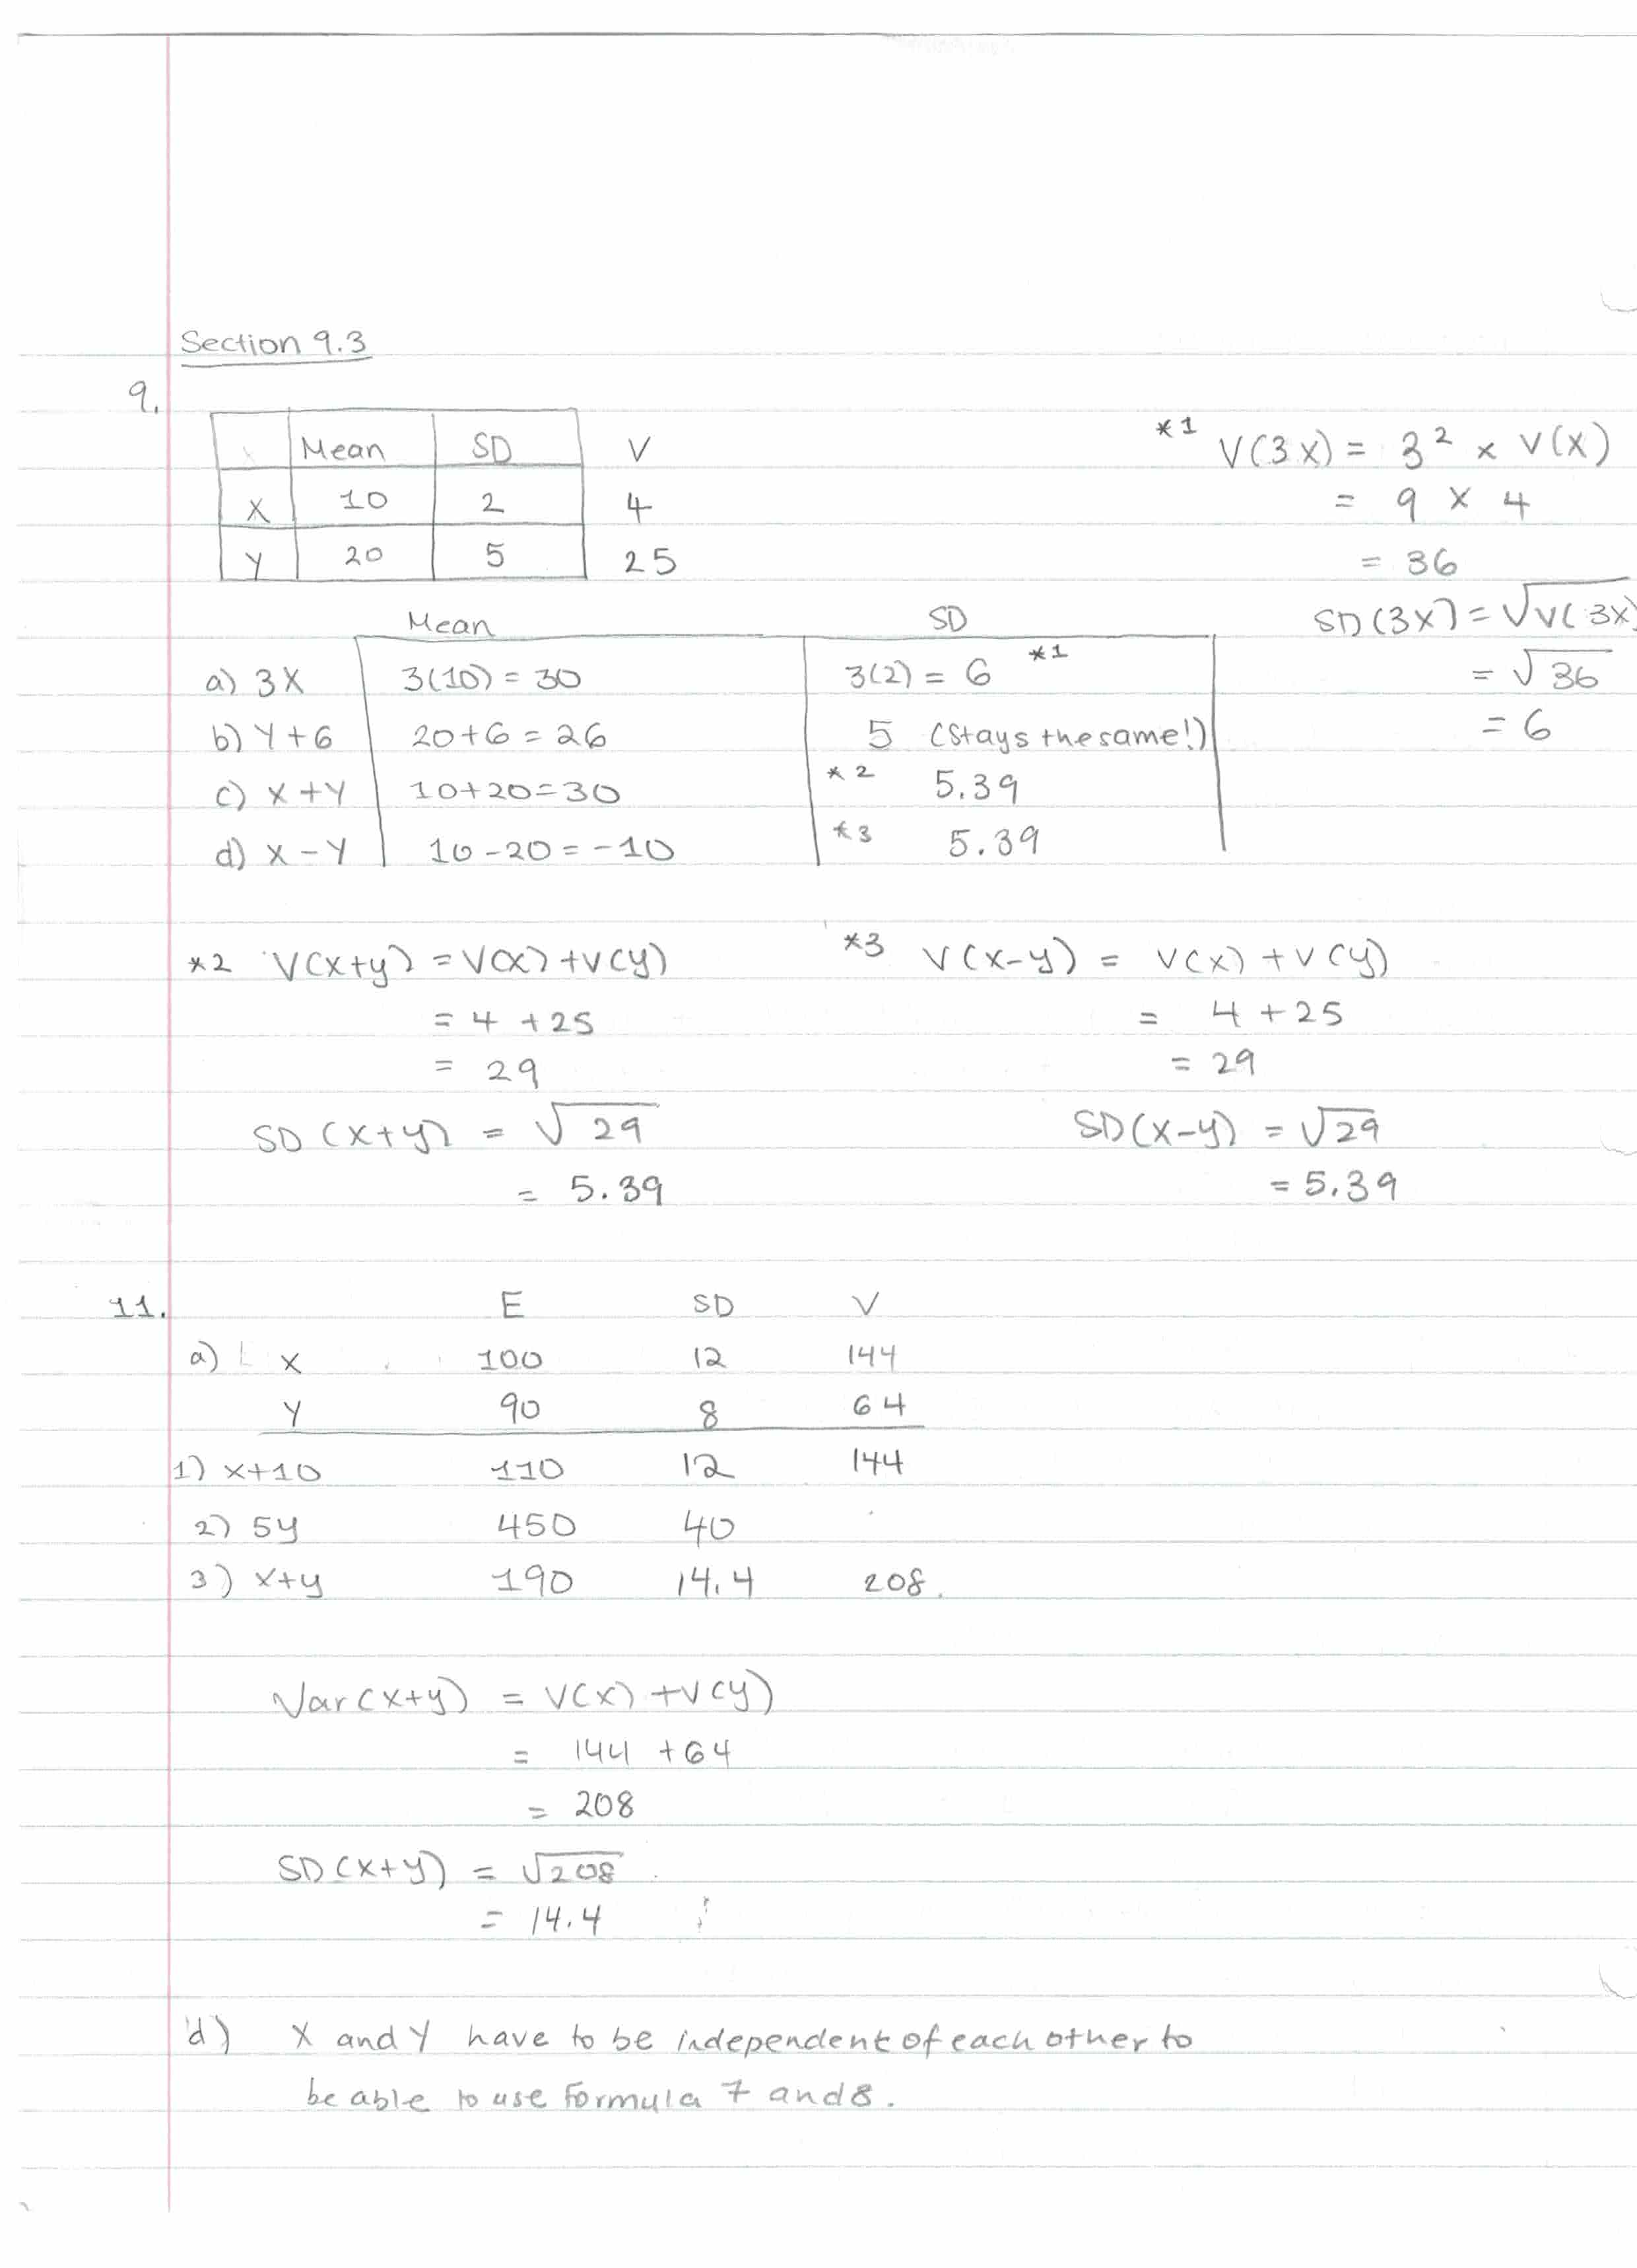 Section 9.3
9.
Mean SD V
X 10 2 4
Y 20 5 25
*1 V(3X) = 3² × V(X)
= 9 × 4
= 36
SD(3X) = √V(3X)
= √36
= 6
Mean SD
a) 3X 3(10) = 30 3(2) = 6 *1
b) Y+6 20+6 = 26 5 (Stays the same!)
c) X+Y 10+20=30 *2 5.39
d) X-Y 10-20=-10 *3 5.39
*2 V(x+y) = V(x)+V(y)
= 4 +25
= 29
SD(x+y) = √29
= 5.39
*3 V(x-y) = V(x)+V(y)
= 4+25
= 29
SD(x-y) = √29
= 5.39
11.
E SD V
a) X 100 12 144
Y 90 8 64
1) x+10 110 12 144
2) 5y 450 40
3) x+y 190 14.4 208.
Var(x+y) = V(x)+V(y)
= 144 +64
= 208
SD(x+y) = √208
= 14.4
d) X and Y have to be independent of each other to
be able to use formula 7 and 8.